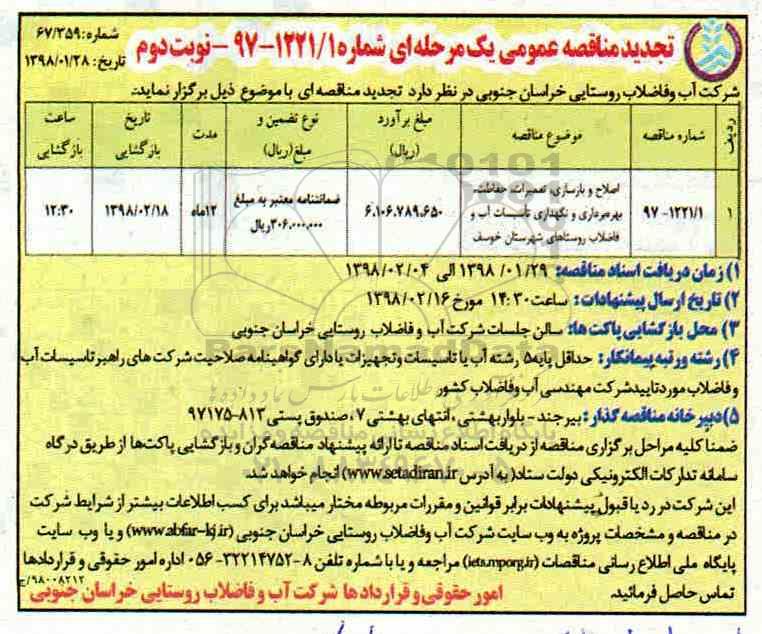 تجدید مناقصه عمومی یک مرحله ای شماره ۱۲۲۱/۱-۹۷ - نوبت دوم
شماره: ۶۷/۳۵۹
تاریخ: ۱۳۹۸/۰۱/۲۸
شرکت آب وفاضلاب روستایی خراسان جنوبی در نظر دارد تجدید مناقصه ای با موضوع ذیل برگزار نماید:
ردیف شماره مناقصه موضوع مناقصه مبلغ برآورد (ریال) نوع تضمین و مبلغ(ریال) مدت تاریخ بازگشایی ساعت بازگشایی
۱ ۱۲۲۱/۱-۹۷ اصلاح و بازسازی، تعمیرات، حفاظت، بهره‌برداری و نگهداری تاسیسات آب و فاضلاب روستاهای شهرستان خوسف ۶.۱۰۶.۷۸۹.۶۵۰ ضمانتنامه معتبر به مبلغ ۳۰۶.۰۰۰.۰۰۰ریال ۱۲ماه ۱۳۹۸/۰۲/۱۸ ۱۲:۳۰
۱) زمان دریافت اسناد مناقصه: ۱۳۹۸/۰۱/۲۹ الی ۱۳۹۸/۰۲/۰۴
۲) تاریخ ارسال پیشنهادات: ساعت ۱۴:۳۰ مورخ ۱۳۹۸/۰۲/۱۶
۳) محل بازگشایی پاکت ها: سالن جلسات شرکت آب و فاضلاب روستایی خراسان جنوبی
۴) رشته ورتبه پیمانکار: حداقل پایه۵ رشته آب یا تاسیسات وتجهیزات یا دارای گواهینامه صلاحیت شرکت های راهبر تاسیسات آب
و فاضلاب مورد تایید شرکت مهندسی آب وفاضلاب کشور
۵) دبیرخانه مناقصه گذار: بیرجند - بلوار بهشتی، انتهای بهشتی ۷، صندوق پستی ۸۱۳-۹۷۱۷۵
ضمنا کلیه مراحل برگزاری مناقصه از دریافت اسناد مناقصه تا ارائه پیشنهاد مناقصه گران و بازگشایی پاکت‌ها از طریق درگاه
سامانه تدارکات الکترونیکی دولت ستاد( به آدرس www.setadiran.ir) انجام خواهد شد.
این شرکت در رد یا قبول پیشنهادات برابر قوانین و مقررات مربوطه مختار میباشد برای کسب اطلاعات بیشتر از شرایط شرکت
در مناقصه و مشخصات پروژه به وب سایت شرکت آب وفاضلاب روستایی خراسان جنوبی (www.abfar-kj.ir) و یا وب سایت
پایگاه ملی اطلاع رسانی مناقصات (iets.mporg.ir) مراجعه و یا با شماره تلفن ۸-۳۲۲۱۴۷۵۲-۰۵۶ اداره امور حقوقی و قراردادها
تماس حاصل فرمائید.
۹۸۰۰۸۲۱۲/ج
امور حقوقی و قراردادها شرکت آب و فاضلاب روستایی خراسان جنوبی